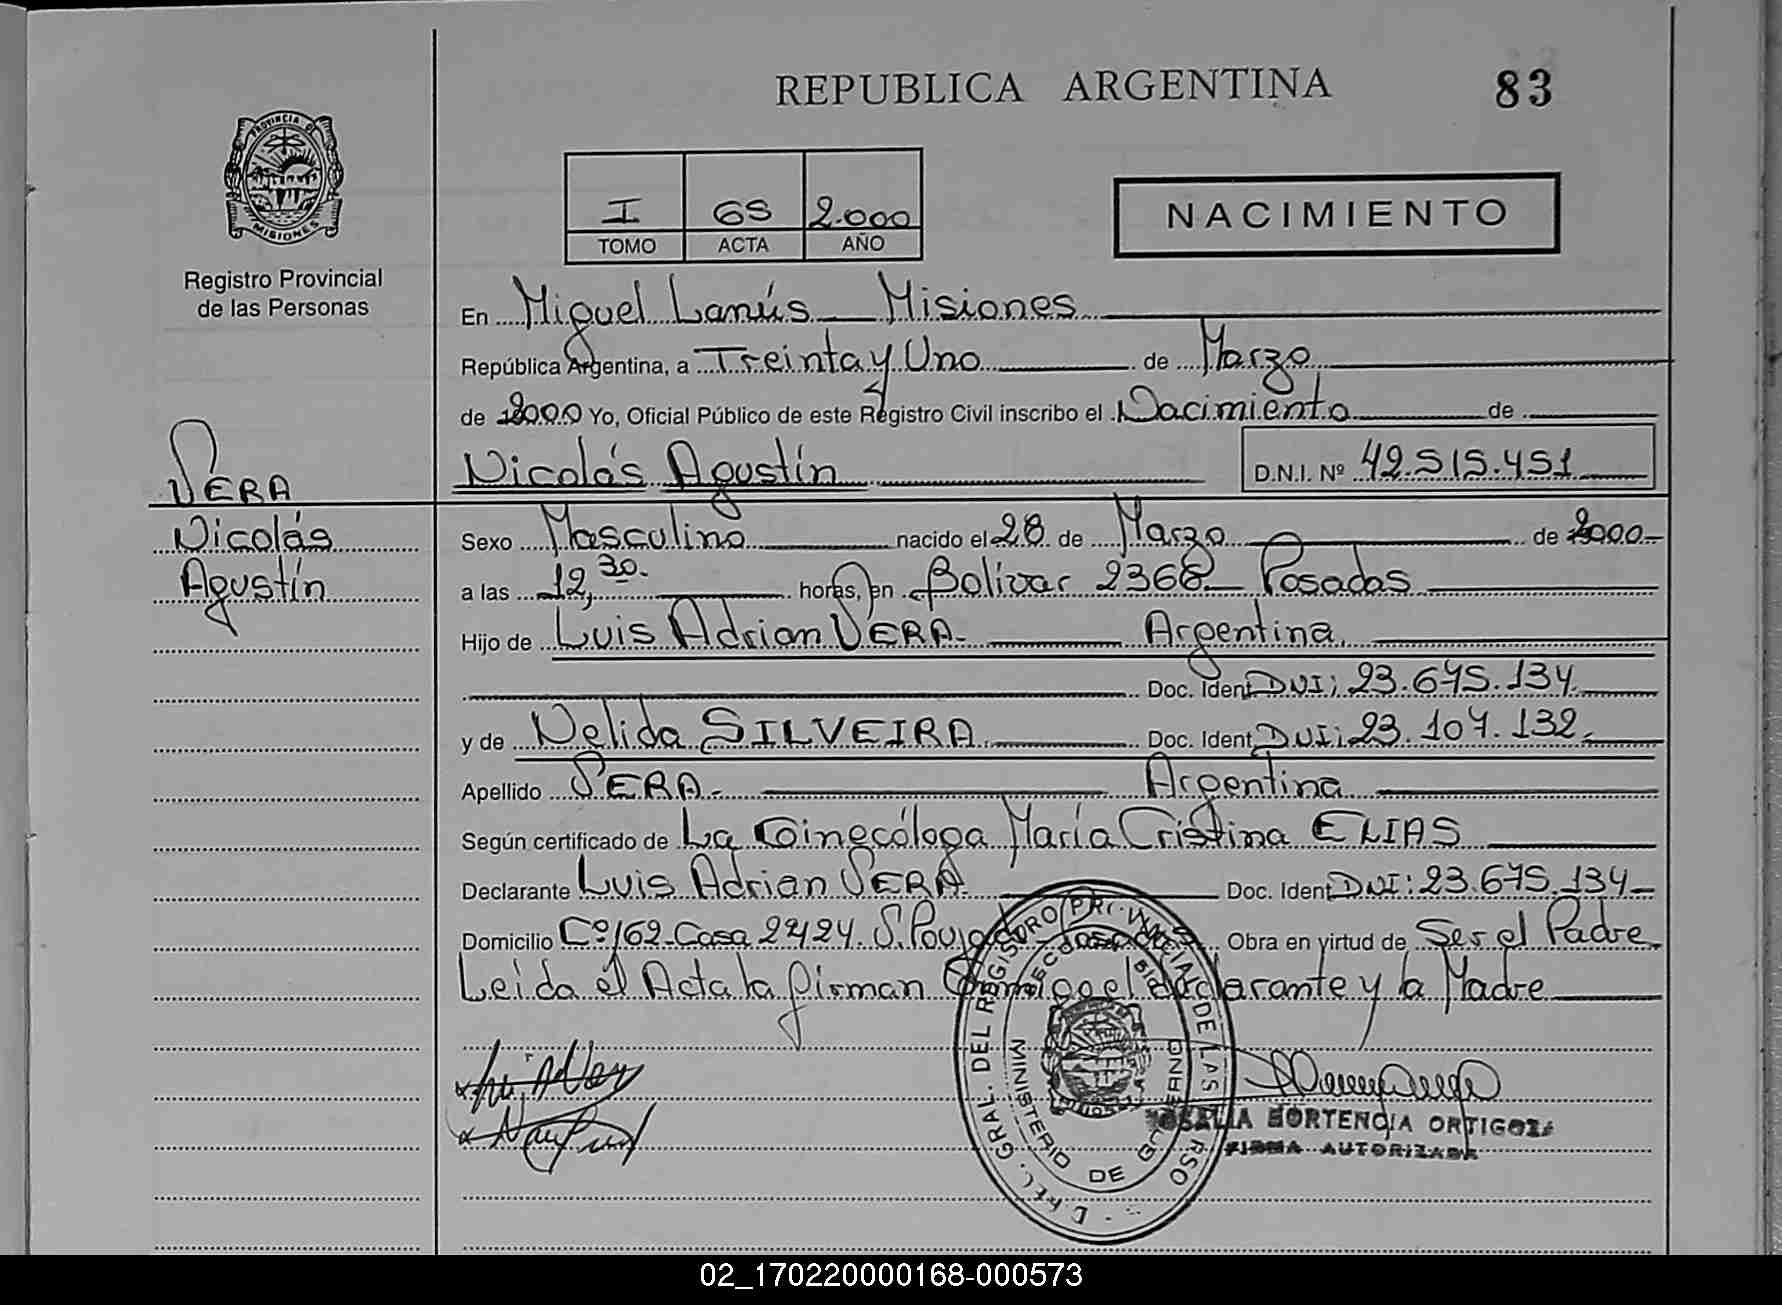 REPUBLICA ARGENTINA
83
PROVINCIA DE
MISIONES
Registro Provincial
de las Personas
I 65 2.000
TOMO ACTA AÑO
NACIMIENTO
En Miguel Lanús Misiones
República Argentina, a Treinta y Uno de Marzo
de 2000 Yo, Oficial Público de este Registro Civil inscribo el Nacimiento de
VERA
Nicolás Agustín D.N.I. Nº 42.515.451
Nicolás
Agustín
Sexo Masculino nacido el 28 de Marzo de 2000
a las 12,30. horas, en Bolívar 2368 Posadas
Hijo de Luis Adrian VERA Argentina.
Doc. Ident DNI: 23.675.134
y de Nelida SILVEIRA Doc. Ident DNI: 23.107.132
Apellido VERA Argentina
Según certificado de La Ginecóloga María Cristina ELIAS
Declarante Luis Adrian VERA Doc. Ident DNI: 23.675.134
Domicilio Cº/62 Casa Posadas Obra en virtud de Ser el Padre
Leída el Acta la firman Conmigo el declarante y la Madre
GRAL. DEL REGISTRO PROVINCIAL DE LAS
MINISTERIO DE GOBIERNO
HORTENCIA ORTIGOZA
FIRMA AUTORIZADA
02_170220000168-000573